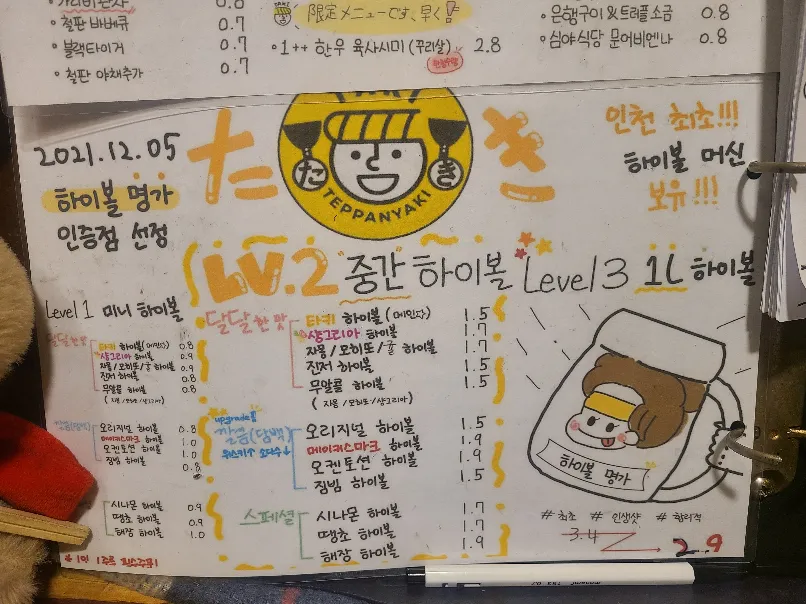 철판 바베큐 0.7
블랙타이거 0.7
철판 야채추가 0.7
限定メニューです、早く
1++ 한우 육사시미 (꾸리살) 2.8
은행구이 & 트러플 소금 0.8
심야식당 문어비엔나 0.8
2021.12.05
하이볼 명가
인증점 선정
た き
TEPPANYAKI
인천 최초!!!
하이볼 머신
보유!!!
Level 1 미니 하이볼
달달한 맛
타키 하이볼 (메인다) 0.8
샹그리아 하이볼 0.9
자몽/모히또/유자 하이볼 0.9
진저 하이볼 0.8
무알콜 하이볼 0.8
오리지널 하이볼 0.8
메이커스마크 하이볼 1.0
오켄토션 하이볼 1.0
짐빔 하이볼 0.8
시나몬 하이볼 0.9
땡초 하이볼 0.9
해장 하이볼 1.0
LV.2 "중간" 하이볼
달달한 맛
타키 하이볼 (메인다) 1.5
샹그리아 하이볼 1.7
자몽/모히또/유자 하이볼 1.7
진저 하이볼 1.5
무알콜 하이볼 1.5
(자몽/모히또/샹그리아)
upgrade!!
깔끔(담백)
위스키↑ 소다수↓
오리지널 하이볼 1.5
메이커스마크 하이볼 1.9
오켄토션 하이볼 1.9
짐빔 하이볼 1.5
스페셜
시나몬 하이볼 1.7
땡초 하이볼 1.7
해장 하이볼 1.9
Level 3 1L 하이볼
하이볼 명가
# 최초 # 인생샷 # 합리적
3.4 → 2.9
* 1인 1주류 필수주문!